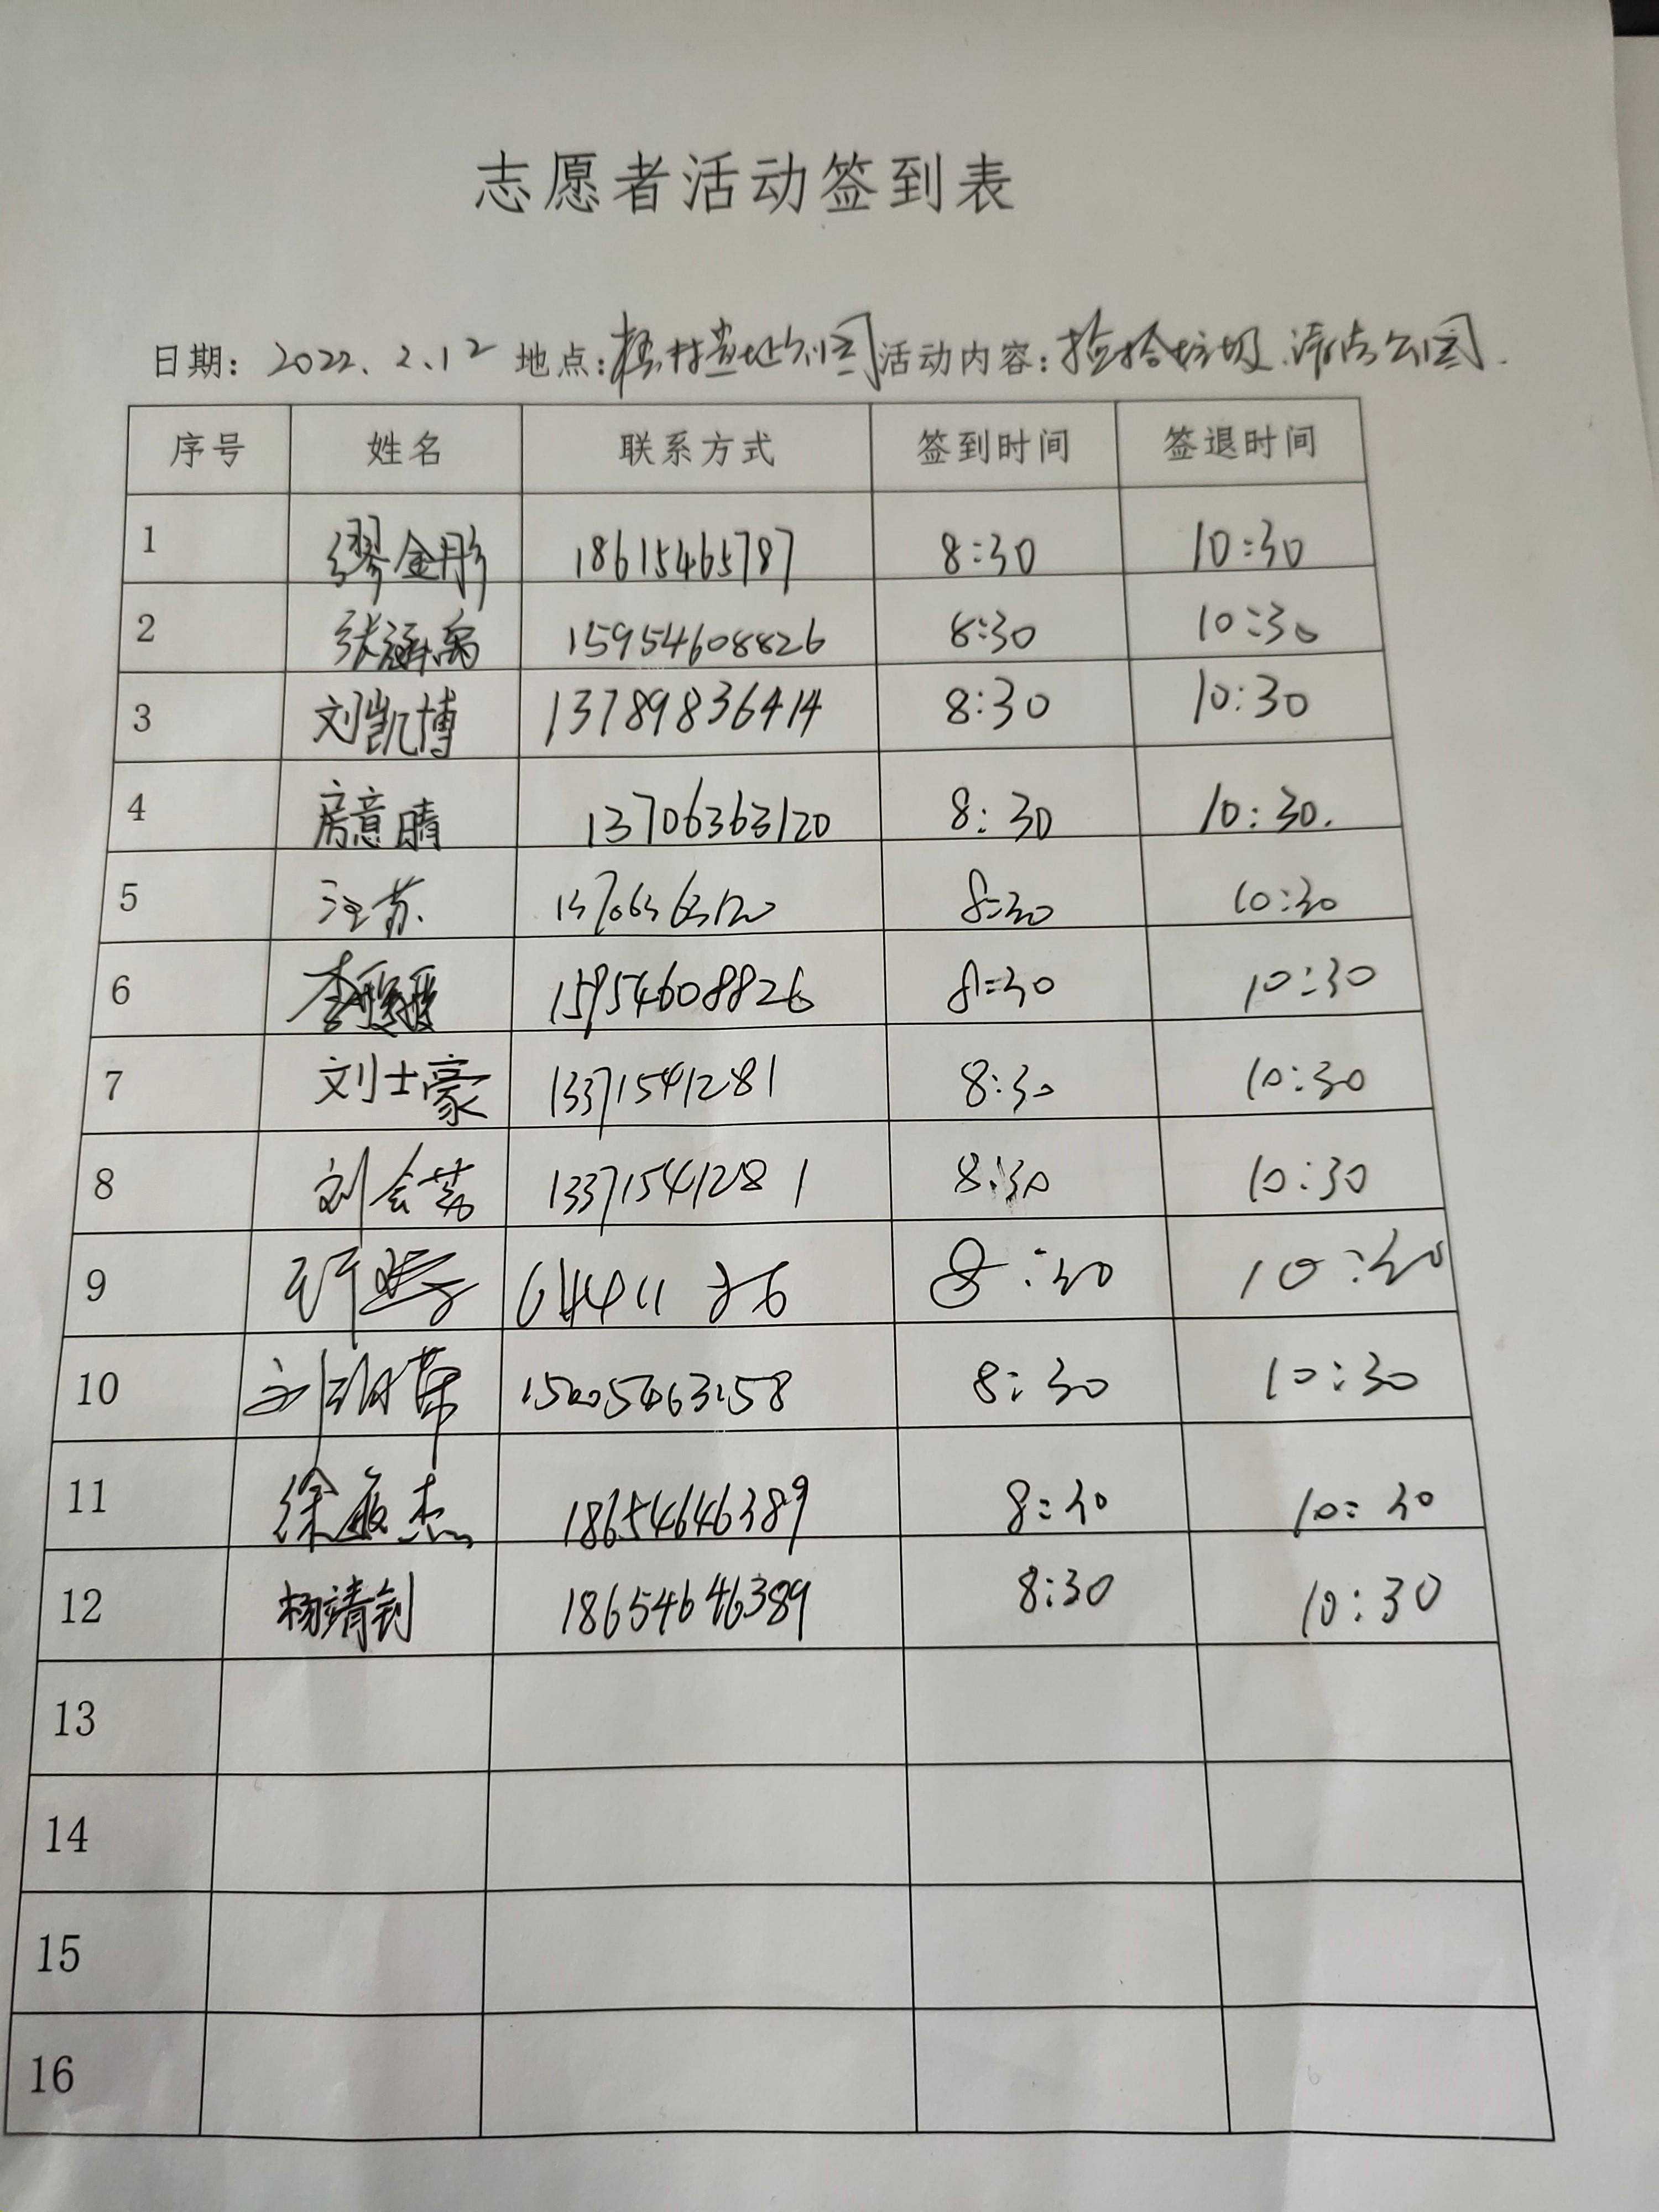 志愿者活动签到表
日期: 2022.2.12 地点: 公园 活动内容: 捡拾垃圾.清洁公园.
序号 姓名 联系方式 签到时间 签退时间
1 缪金彤 18615465787 8:30 10:30
2 张涵禹 15954608826 8:30 10:30
3 刘凯博 13789836414 8:30 10:30
4 房意晴 13706363120 8:30 10:30.
5 汪苏 13706363120 8:30 10:30
6 李 15954608826 8:30 10:30
7 刘士豪 13371541281 8:30 10:30
8 刘会 13371541281 8:30 10:30
9 8:30 10:30
10 8:30 10:30
11 徐 杰 18654646389 8:30 10:30
12 杨靖钊 18654646389 8:30 10:30
13
14
15
16